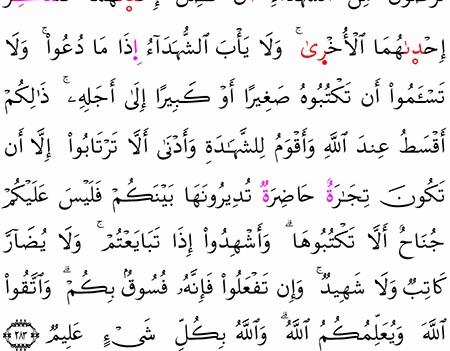 إِحْدَىٰهُمَا ٱلْأُخْرَىٰ ۚ وَلَا يَأْبَ ٱلشُّهَدَآءُ إِذَا مَا دُعُوا۟ ۚ وَلَا
تَسْـَٔمُوٓا۟ أَن تَكْتُبُوهُ صَغِيرًا أَوْ كَبِيرًا إِلَىٰٓ أَجَلِهِۦ ۚ ذَٰلِكُمْ
أَقْسَطُ عِندَ ٱللَّهِ وَأَقْوَمُ لِلشَّهَٰدَةِ وَأَدْنَىٰٓ أَلَّا تَرْتَابُوٓا۟ إِلَّآ أَن
تَكُونَ تِجَٰرَةٌ حَاضِرَةٌ تُدِيرُونَهَا بَيْنَكُمْ فَلَيْسَ عَلَيْكُمْ
جُنَاحٌ أَلَّا تَكْتُبُوهَا ۗ وَأَشْهِدُوٓا۟ إِذَا تَبَايَعْتُمْ ۚ وَلَا يُضَآرَّ
كَاتِبٌ وَلَا شَهِيدٌ ۚ وَإِن تَفْعَلُوا۟ فَإِنَّهُۥ فُسُوقٌۢ بِكُمْ ۗ وَٱتَّقُوا۟
ٱللَّهَ وَيُعَلِّمُكُمُ ٱللَّهُ ۗ وَٱللَّهُ بِكُلِّ شَىْءٍ عَلِيمٌ ٢٨٣